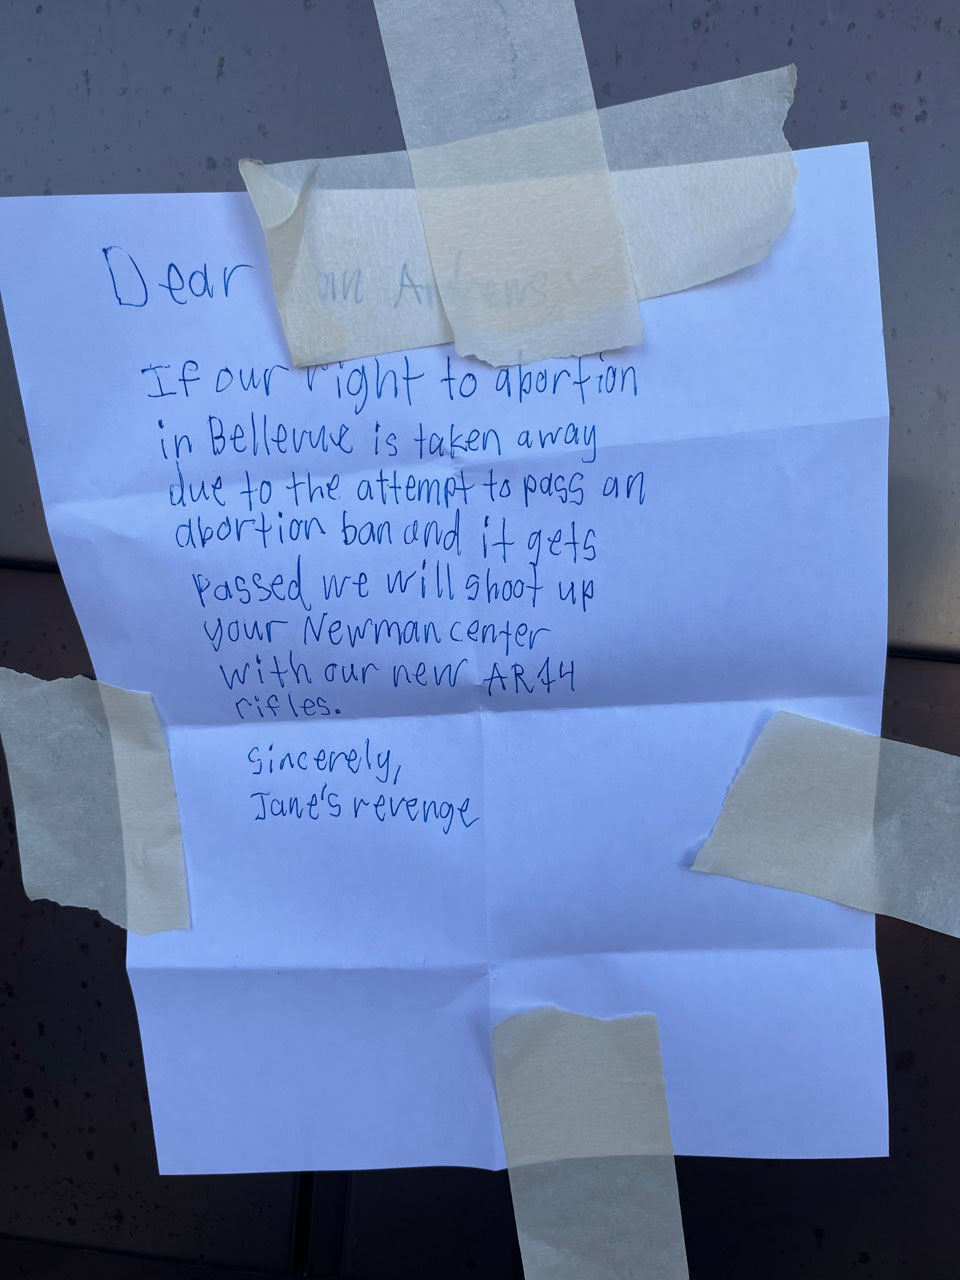 Dear Andrews
If our right to abortion
in Bellevue is taken away
due to the attempt to pass an
abortion ban and it gets
passed we will shoot up
your Newman center
with our new AR14
rifles.
Sincerely,
Jane's revenge